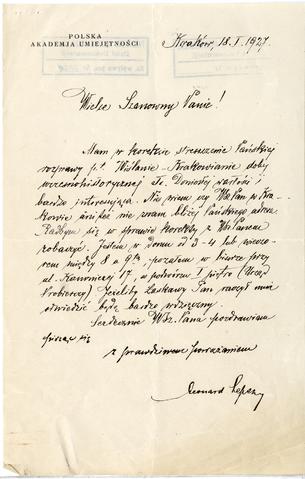 POLSKA
AKADEMJA UMIEJĘTNOŚCI
Kraków, 18. I. 1927.
Wielce Szanowny Panie!
Mam w korekcie streszczenie Pańskiej
rozprawy p.t. Wiślanie - Krakowianie doby
wczesnohistorycznej
bardzo interesująca. Nie wiem czy WPan w Kra-
kowie i nie znam bliżej Pańskiego adresu
Radbym się w sprawie korekty z WPanem
zobaczyć. Jestem w domu od 3-4 lub wieczo-
rem między 8 a 9tą, pozatem w biurze przy
ul. Kanoniczej 17, w podwórzu I piętro (Urząd
Probierczy) Jeżeliby Łaskawy Pan raczył mnie
odwiedzić będę bardzo wdzięczny.
Serdecznie WSz. Pana pozdrawiam
piszę się
z prawdziwem poważaniem
Leonard Lepszy